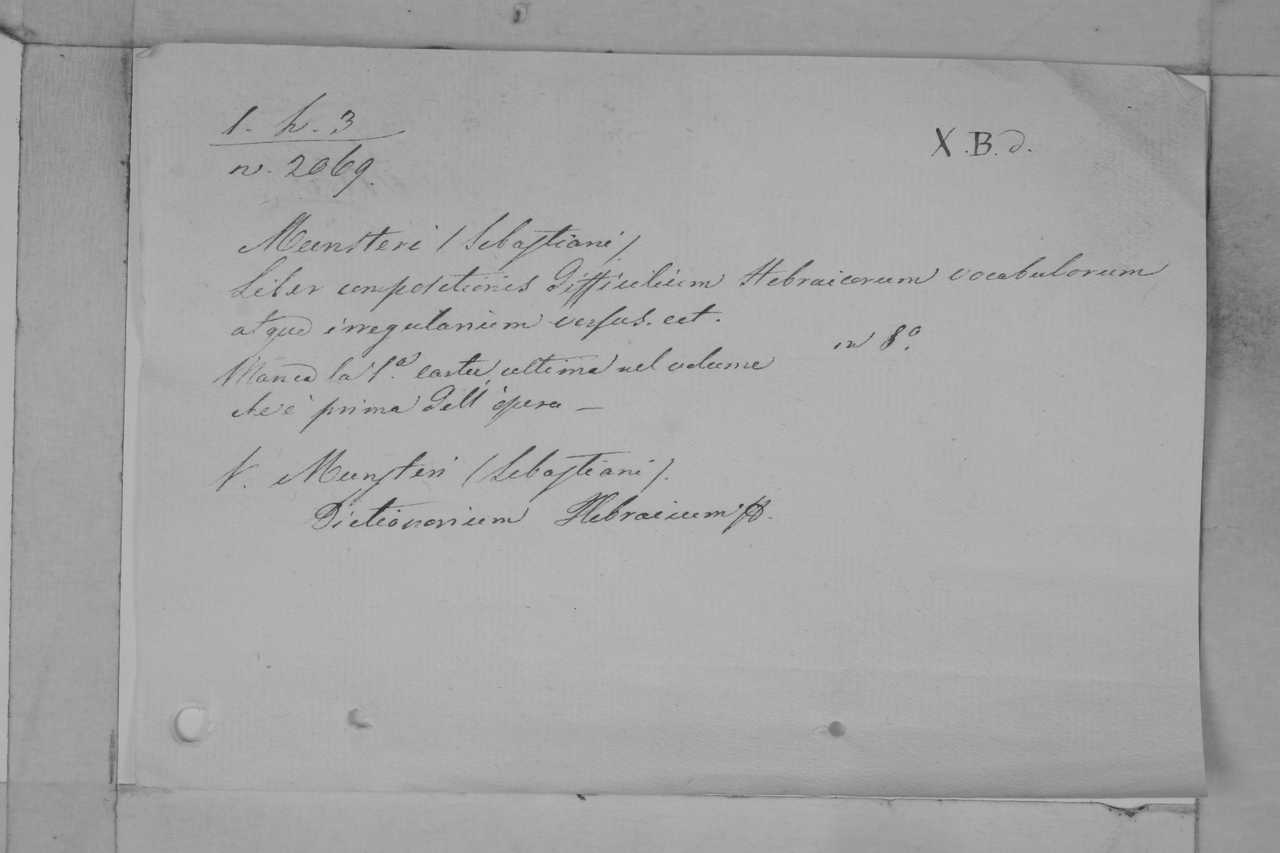 1. h. 3
n. 2069.
X.B.d.
Munsteri (Sebastiani)
Liber compositionis difficilium Hebraicorum vocabulorum
atque irregularium cect.
in 8.º
Manca la 1.ª carta, ultima nel volume
che è prima dell'opera —
V. Munsteri (Sebastiani).
Dictionarium Hebraicum